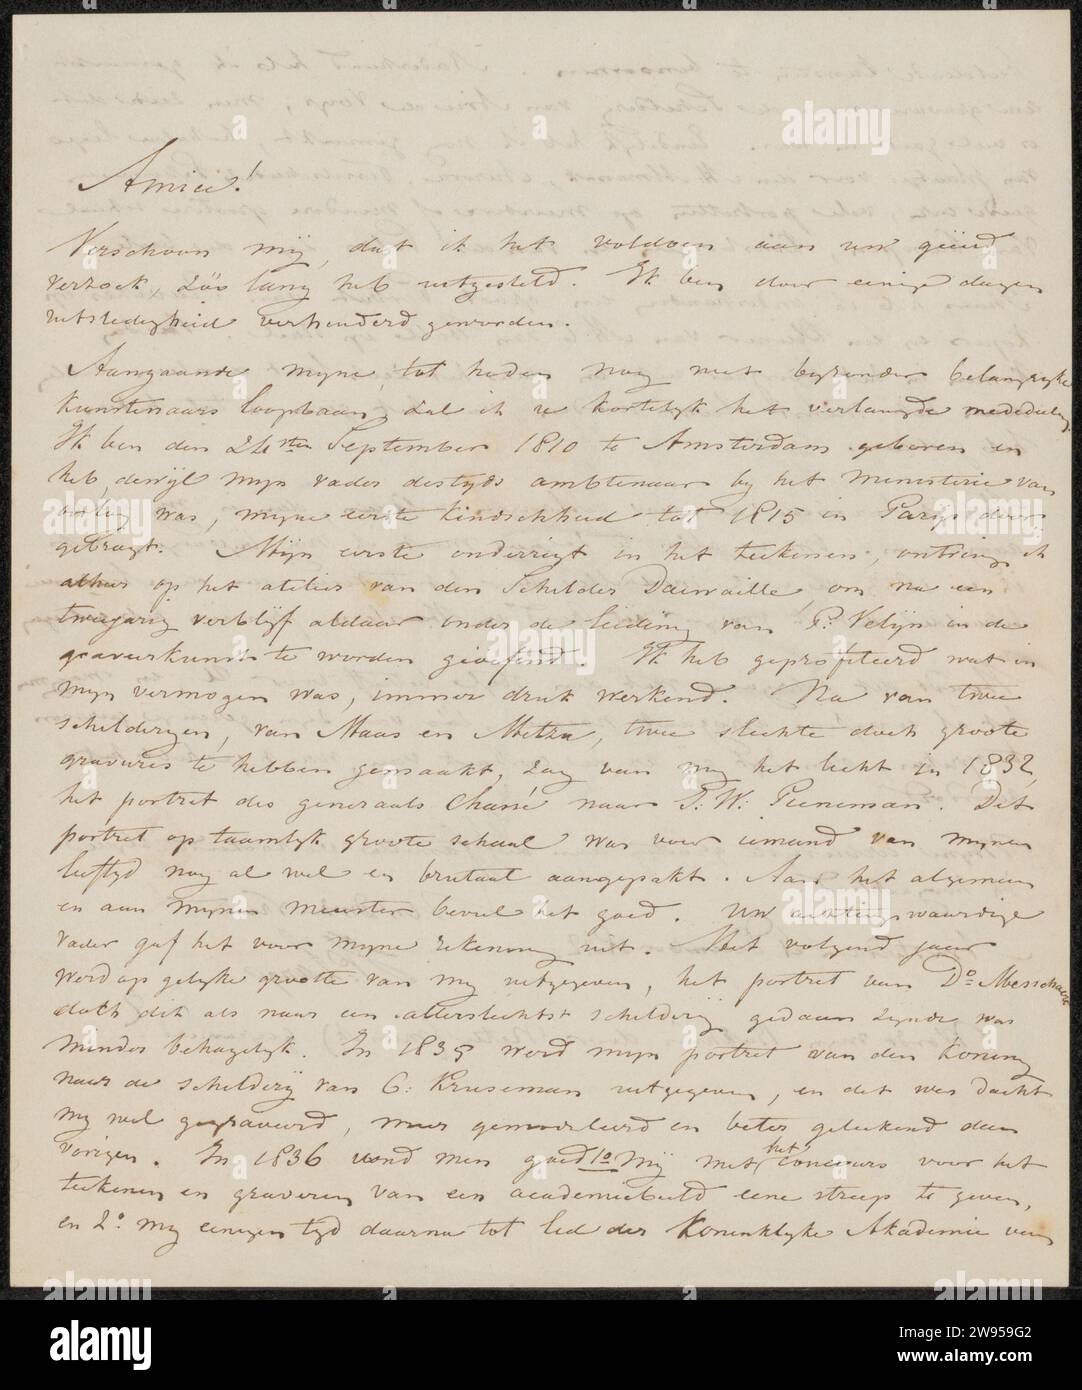 Amice!
Verschoon mij, dat ik het voldoen aan uw geëerd
verzoek, zóó lang heb uitgesteld. Ik ben door eenige dagen
uitstedigheid verhinderd geworden.
Aangaande mijne, tot heden nog niet byzonder belangryke
kunstenaars loopbaan, zal ik u kortelyk het verlangde mededeelen.
Ik ben den 24sten September 1810 te Amsterdam geboren en
heb, dewyl myn vader destyds ambtenaar by het Ministerie van
oorlog was, myne eerste kindschheid tot 1815 in Parys door
gebragt. Mijn eerste onderrigt in het teekenen, ontving ik
alhier op het atelier van den Schilder Daiwaille, om na een
tweejarig verblijf aldaar onder de leiding van P. Velijn in de
graveerkunst te worden geoefend. Ik heb geprofiteerd wat in
myn vermogen was, immer druk werkend. Na van twee
schilderyen, van Maas en Metzu, twee slechte doch groote
gravures te hebben gemaakt, zag van my het licht in 1832,
het portret des generaals Chassé naar J: W: Pieneman. Dit
portret op taamlyk groote schaal was voor iemand van mynen
leeftyd nog al wel en brutaal aangepakt. Aan het algemeen
en aan mynen meester beviel het goed. Uw achtingswaardige
vader gaf het voor myne rekening uit. Het volgend jaar
werd op gelyke grootte van my uitgegeven, het portret van Do. Messchaert
doch dit als naar een allerslechtst schildery gedaan zynde was
minder behagelyk. In 1835 werd mijn portret van den Koning
naar de schilderij van C: Kruseman uitgegeven, en dit was dacht
my wel gegraveerd, meer gemodeleerd en beter gelijkend dan
vorigen. In 1836 vond men goed 1o. Mij met het concours voor het
teekenen en graveren van een academiebeeld eene streep te geven,
en 2o. my eenigen tyd daarna tot lid der Koninklyke Akademie van
alamy
Image ID: 2W959G2
www.alamy.com